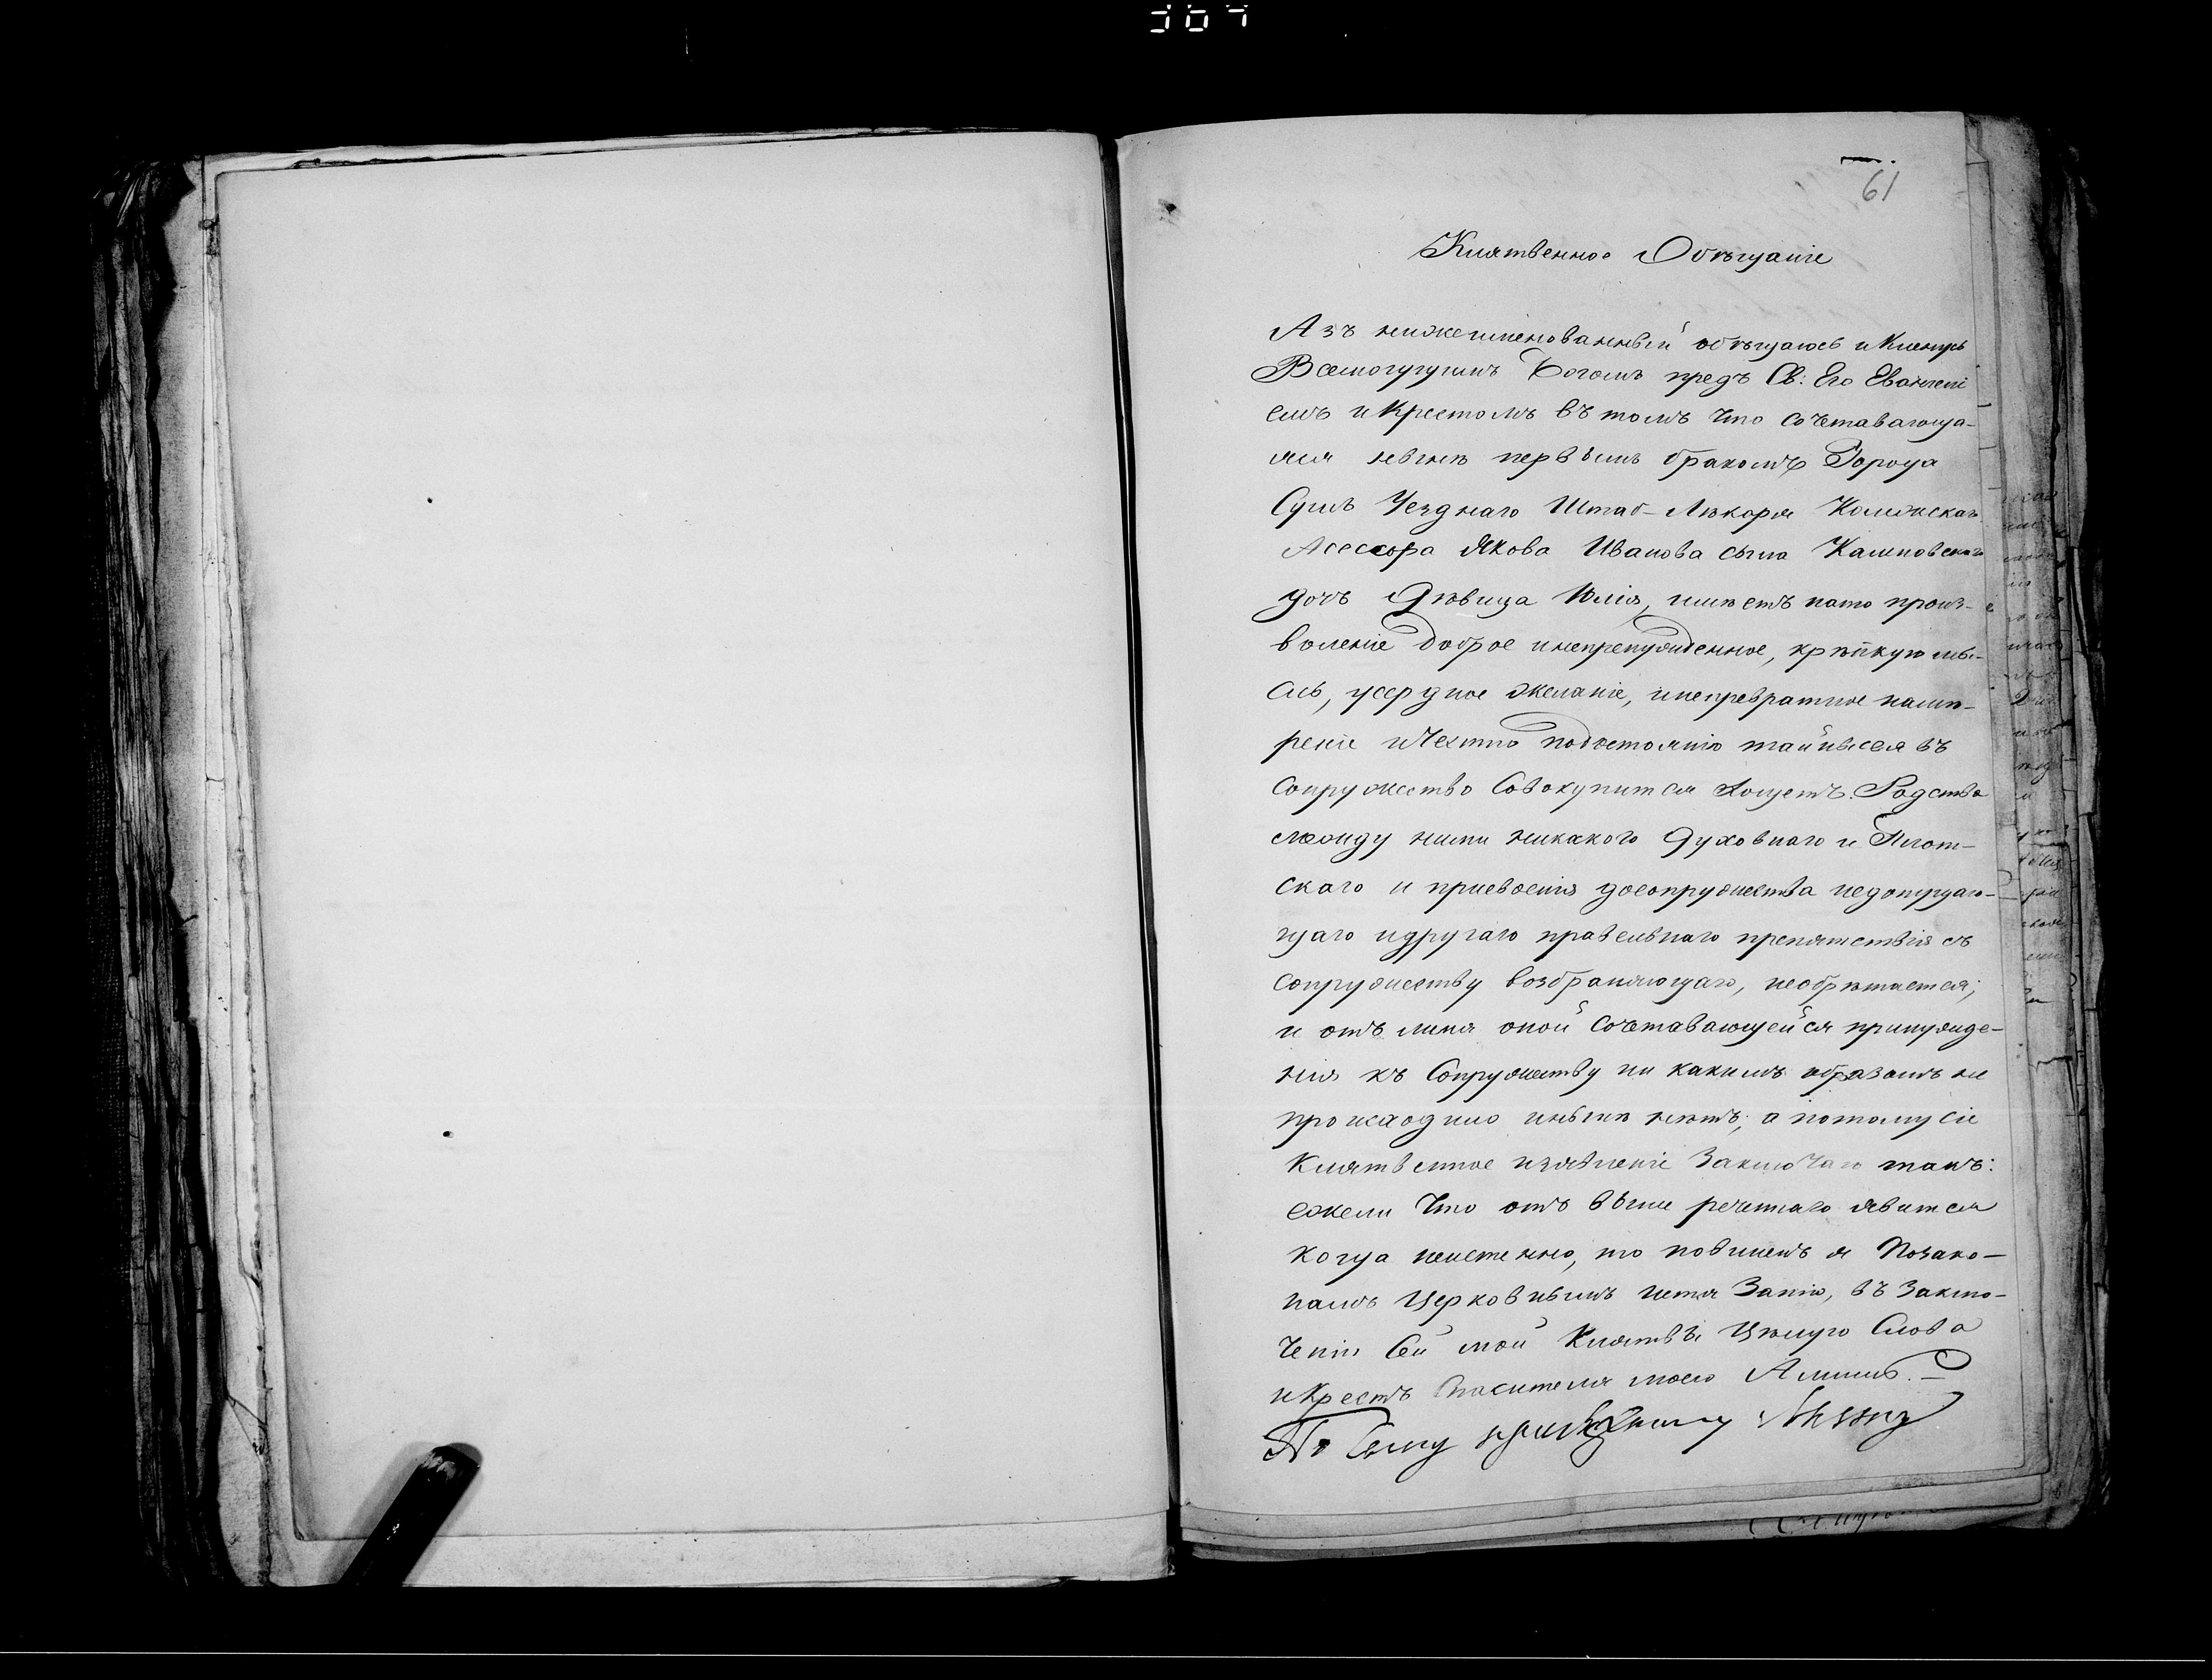 61
Клятвенное Обѣщаніе
Азъ нижеименованный обѣщаюсь и Кленусь
Всемогущимъ Богомъ предъ Св: Его Евангелі
емъ и Крестомъ въ томъ что сочетавающа-
яся нынѣ первымъ бракомъ Города
Сумъ Уезднаго Штаб-Лѣкаря Колежскаго
Асессора Якова Иванова сына Калиновскаго
дочь Дѣвица Юлія, имѣетъ нато произ-
воленіе доброе инепренужденное, крѣпкую мы-
сль, усердное желаніе, инепревратное намѣ-
реніе иЧестно
Сопружество Совокупится Хощетъ. Родства
между ними никакого Духовнаго и Плот-
скаго и присвоенія досопружества недопущаю-
щаго идругаго правельнаго препятствія съ
сопружеству возбраняющаго, необрѣтается;
и отъ мѣня оной Сочетавающейся принужде-
нія къ Сопружеству ни какимъ образомъ не
происходило инынѣ нѣтъ; а потому сіе
Клятвенное изявленіе Заключаю такъ:
ежели Что отъ выше реченнаго явится
когда неистенно, то повиненъ я Позако-
намъ Церковнымъ истязанію, въ Заклю-
Ченіи Сей мой Клятвы Цѣлую Слова
иКрестъ Спасителя моего Аминь.
По Сему